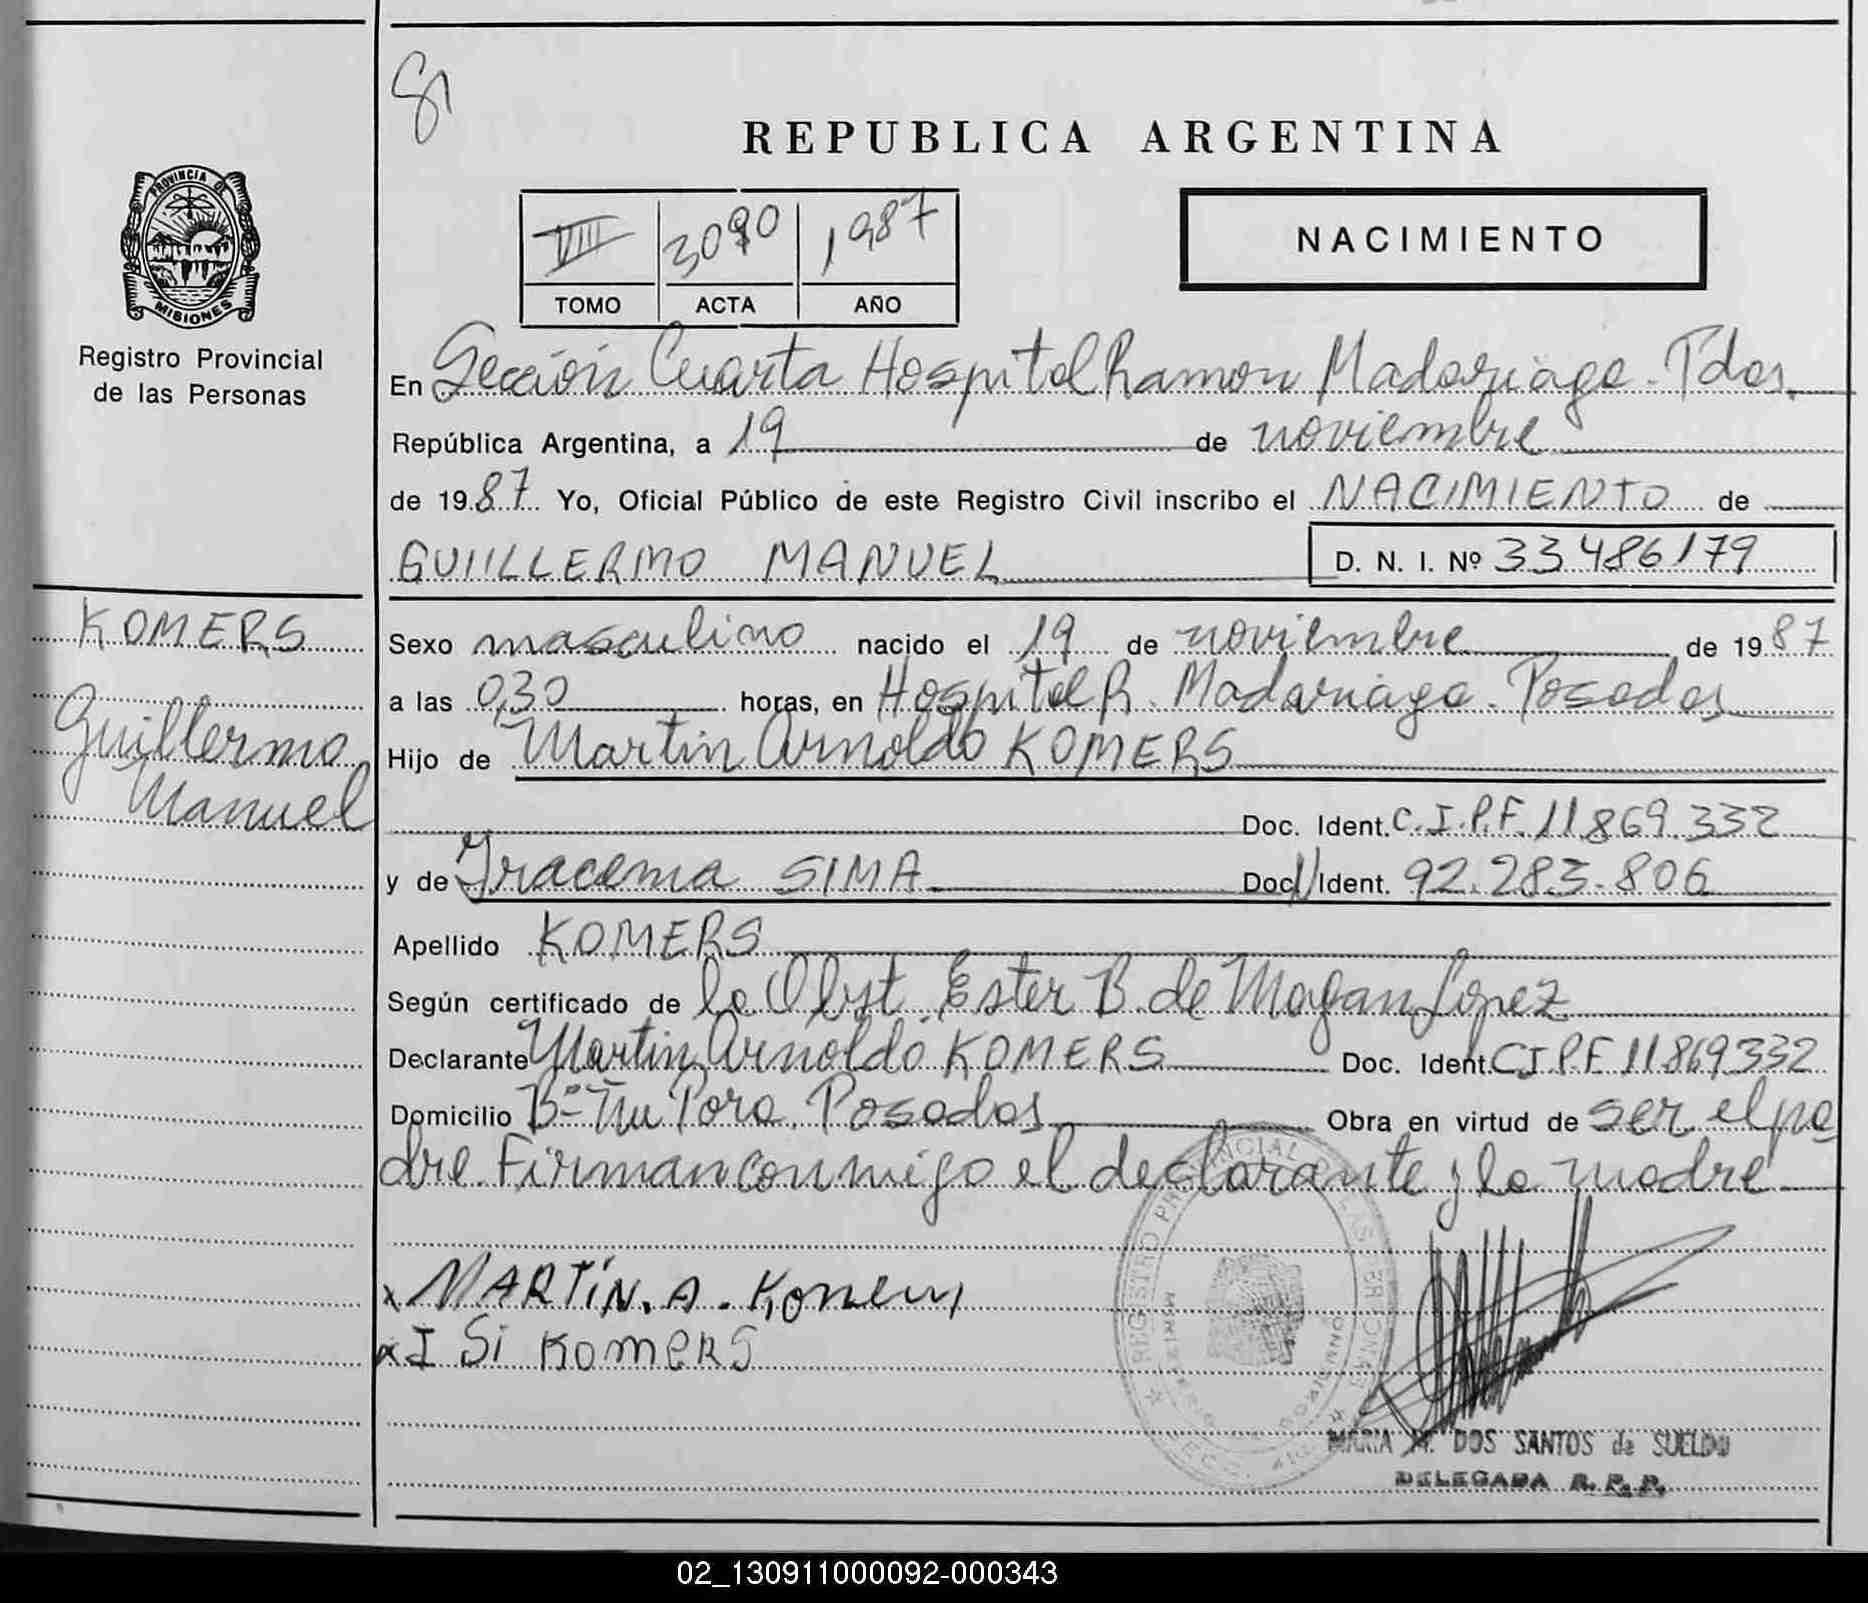 81
REPUBLICA ARGENTINA
PROVINCIA DE
MISIONES
Registro Provincial
de las Personas
VIII 3090 1987
TOMO ACTA AÑO
NACIMIENTO
En Sección Cuarta Hospital Ramon Madariaga. Pdas.
República Argentina, a 19 de noviembre
de 1987 Yo, Oficial Público de este Registro Civil inscribo el NACIMIENTO de
GUIILLERMO MANUEL D. N. I. Nº 33486179
KOMERS
Guillermo
Manuel
Sexo masculino nacido el 19 de noviembre de 1987
a las 0,30 horas, en Hospital R. Madariaga. Posadas
Hijo de Martin Arnoldo KOMERS
Doc. Ident. C.I.P.F. 11869.332
y de Iracema SIMA Doc. Ident. 92.283.806
Apellido KOMERS
Según certificado de la Obst. Ester B. de Magan Lopez
Declarante Martin Arnoldo KOMERS Doc. Ident. C.I.P.F 11869332
Domicilio Bº Ñu Pora. Posadas Obra en virtud de ser el pa
dre. Firman conmigo el declarante y la madre
x MARTíN. A. Komers
x I Si KOMERS
REGISTRO PROVINCIAL DE LAS PERSONAS
MARIA M. DOS SANTOS de SUELDO
DELEGADA R. P. P.
02_130911000092-000343